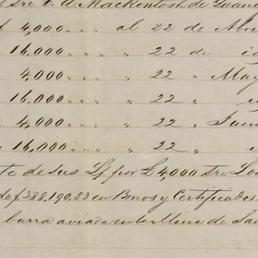 Sre. E. d. Mackintosh de Guana
£ 4,000 " " al 22 de Abr
" 16,000 " " " 22 de i
" 4,000 " " " 22 " May
" 16,000 " " " 22 "
" 4,000 " " " 22 " Juni
" 16,000 " " " 22 "
te de sus Lf por £ 4,000 Sre Lon
de $ 388,190.83 en Bonos y Certificados
barra aviada en la Mina de Sa